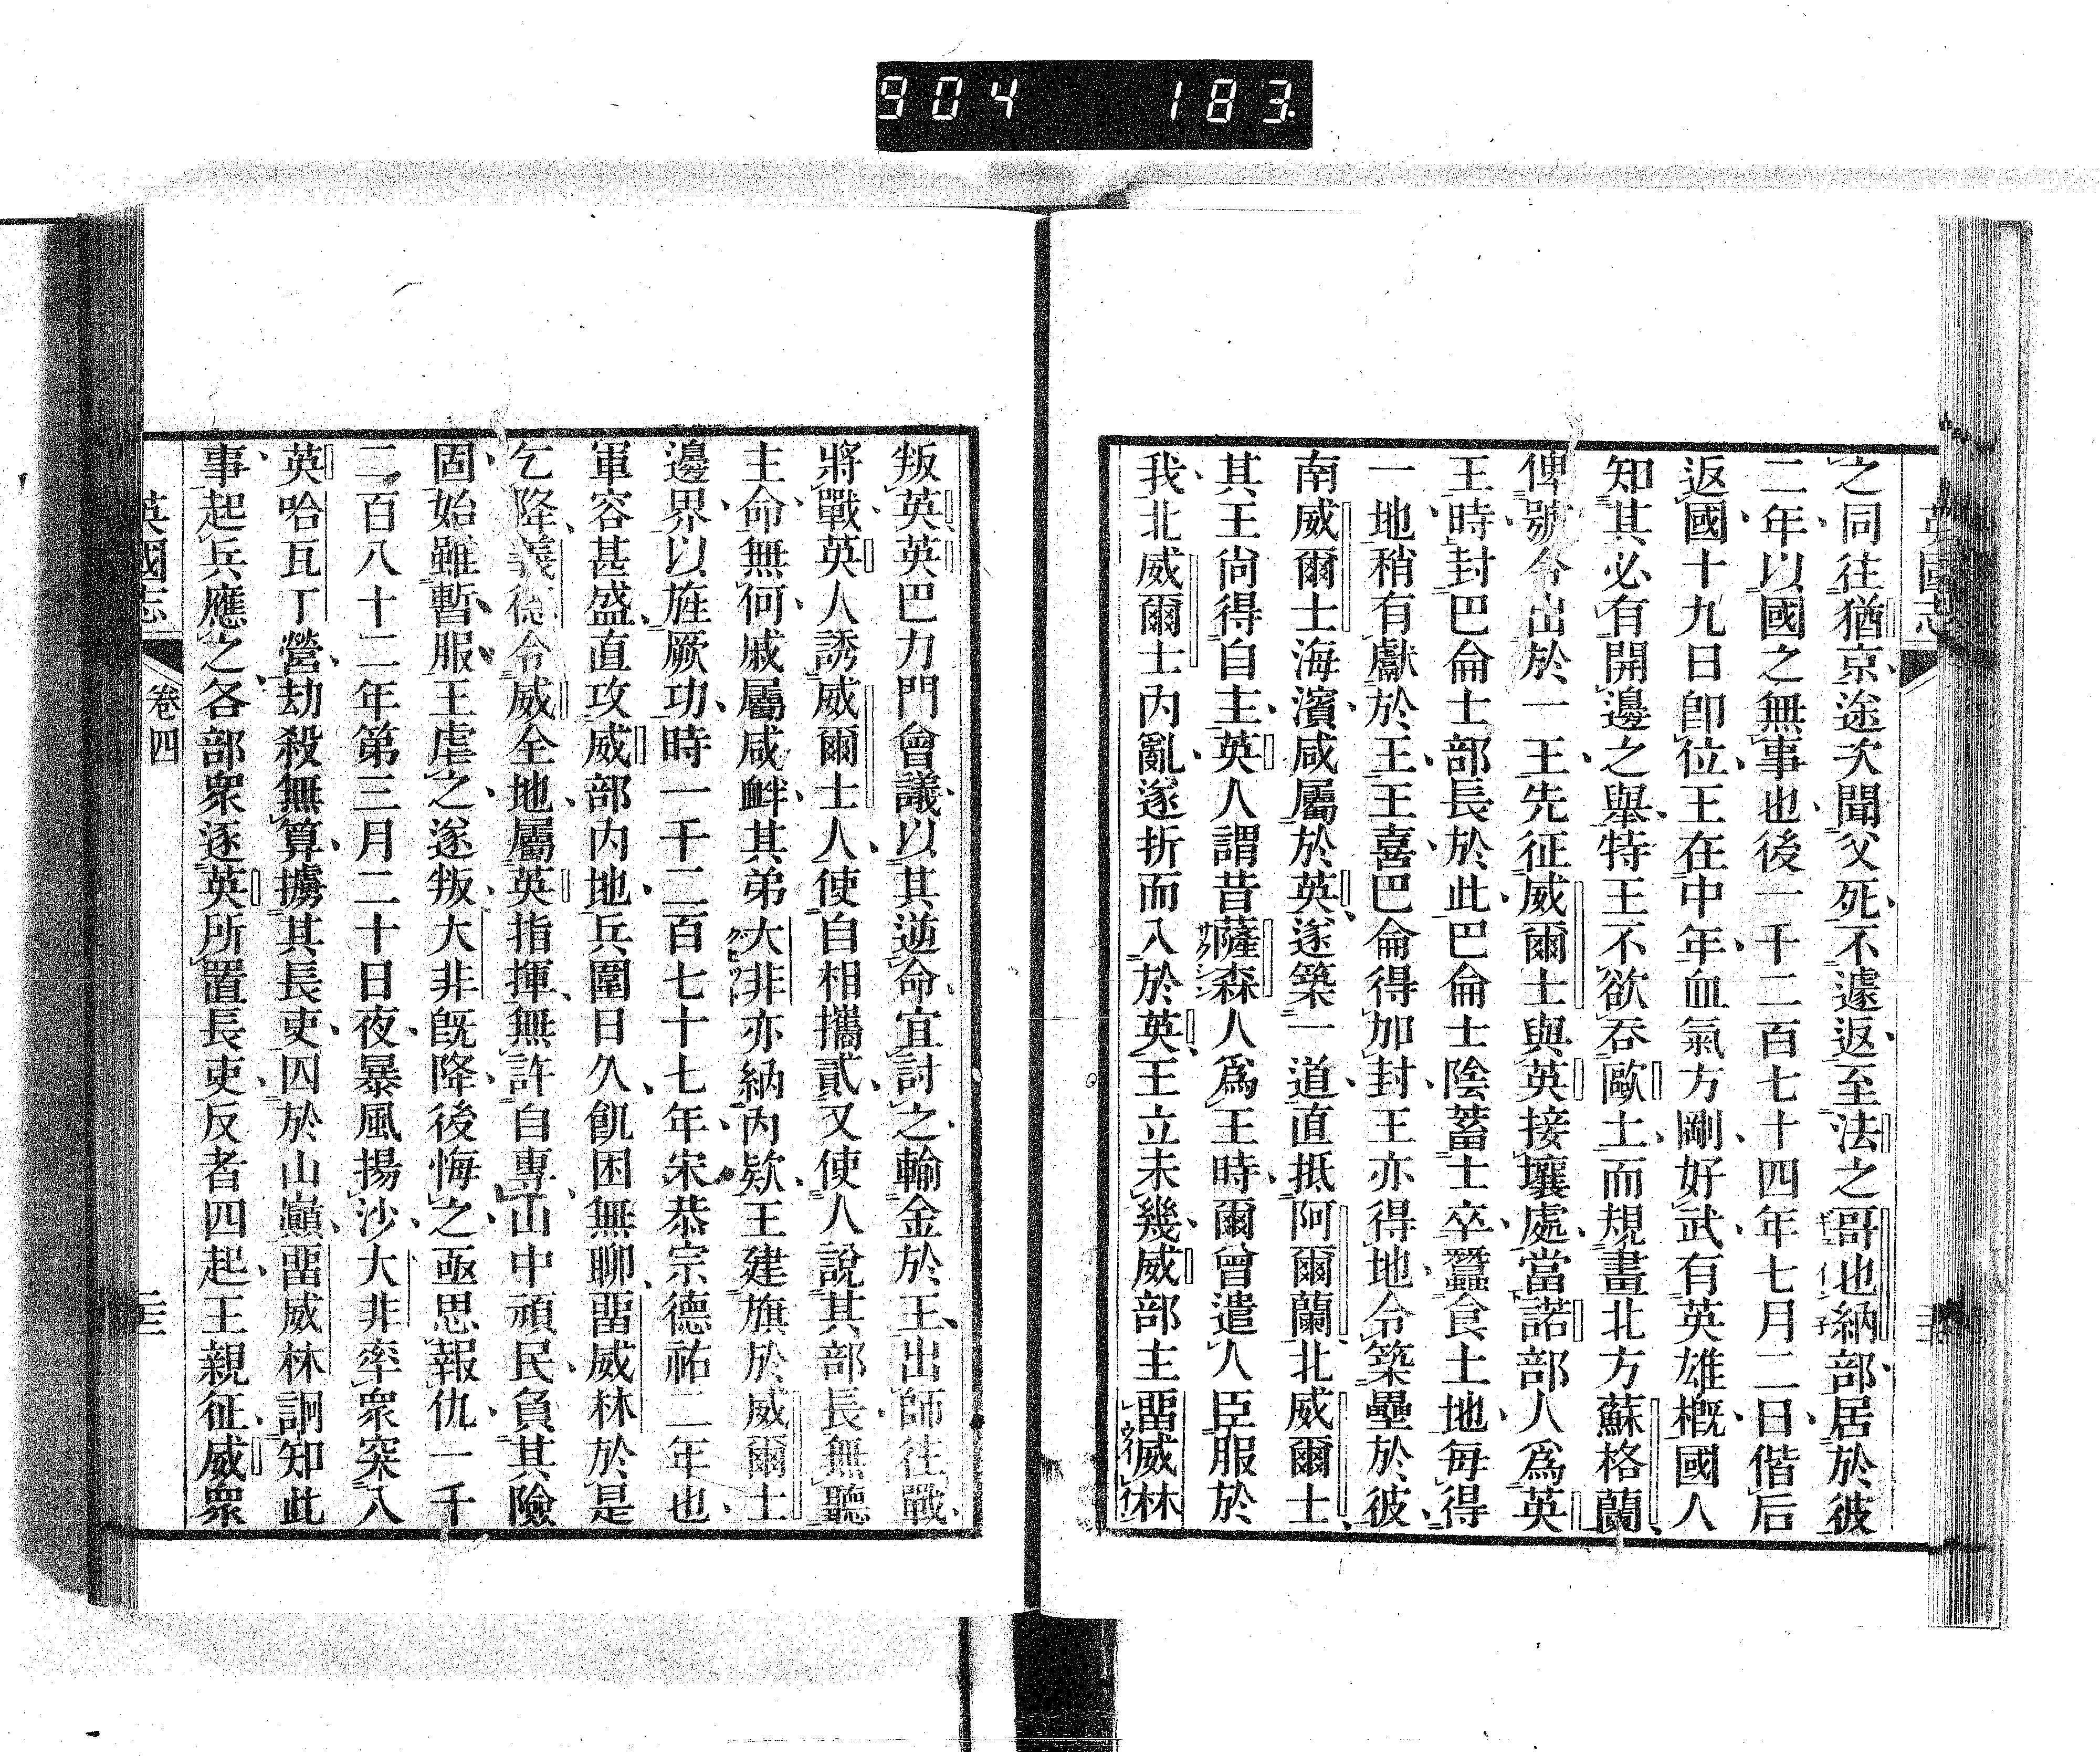 904 183
英國志
之同往猶京途次聞父死不遽返至法之哥也納部居於彼
二年以國之無事也後一千二百七十四年七月二日偕后
返國十九日卽位王在中年血氣方剛好武有英雄槪國人
知其必有開邊之舉特王不欲吞歐土而規畫北方蘇格蘭
俾號令出於一王先征威爾士與英接壤處當諾部人爲英
王時封巴侖士部長於此巴侖士陰蓄士卒蠶食土地每得
一地稍有獻於王王喜巴侖得加封王亦得地令築壘於彼
南威爾士海濱咸屬於英遂築一道直抵阿爾蘭北威爾士
其王尙得自主英人謂昔薩森人爲王時爾曾遣人臣服於
我北威爾士內亂遂折而入於英王立未幾威部主畱威林
叛英英巴力門會議以其逆命宜討之輸金於王出師往戰
將戰英人誘威爾士人使自相攜貳又使人說其部長無聽
主命無何戚屬咸衅其弟大非亦納內欵王建旗於威爾士
邊界以旌厥功時一千二百七十七年宋恭宗德祐二年也
軍容甚盛直攻威部內地兵圍日久飢困無聊畱威林於是
乞降義德令威全地屬英指揮無許自專山中頑民負其險
固始雖暫服王虐之遂叛大非旣降後悔之亟思報仇一千
二百八十二年第三月二十日夜暴風揚沙大非率衆突入
英哈瓦丁營劫殺無算擄其長吏囚於山巔畱威林詗知此
事起兵應之各部衆逐英所置長吏反者四起王親征威衆
英國志
卷四